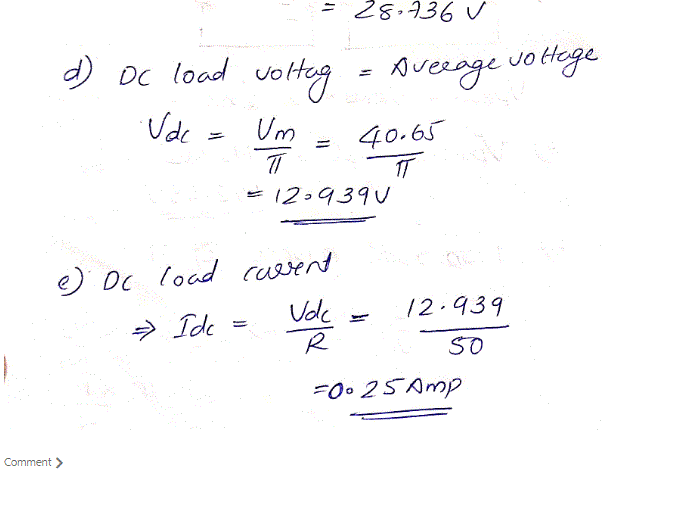 = 28.736 V
d) DC load voltag = Average voltage
Vdc = Vm/π = 40.65/π
= 12.939V
e) DC load current
⇒ Idc = Vdc/R = 12.939/50
=0.25Amp
Comment >